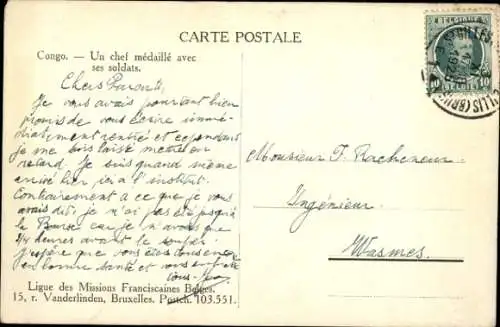 CARTE POSTALE
Congo. — Un chef médaillé avec
ses soldats.
Chers Parents,
Je vous avais pourtant bien
promis de vous écrire immé-
diatement rentré et cependant
je me suis laissé mettre en
retard. Je suis quand même
arrivé hier ici à l'institut.
Contrairement à ce que je vous
avais dit, je n'ai pas été jusqu'à
la Bourse car je n'avais que
3/4 heures avant le souper.
J'espère que vous êtes
en bonne santé et vous
tous.
Ligue des Missions Franciscaines Belges.
15, r. Vanderlinden, Bruxelles. Postch. 103.551.
BELGIQUE
10 10
BELGIË
Monsieur F. Racheneur
Ingénieur
Wasmes.